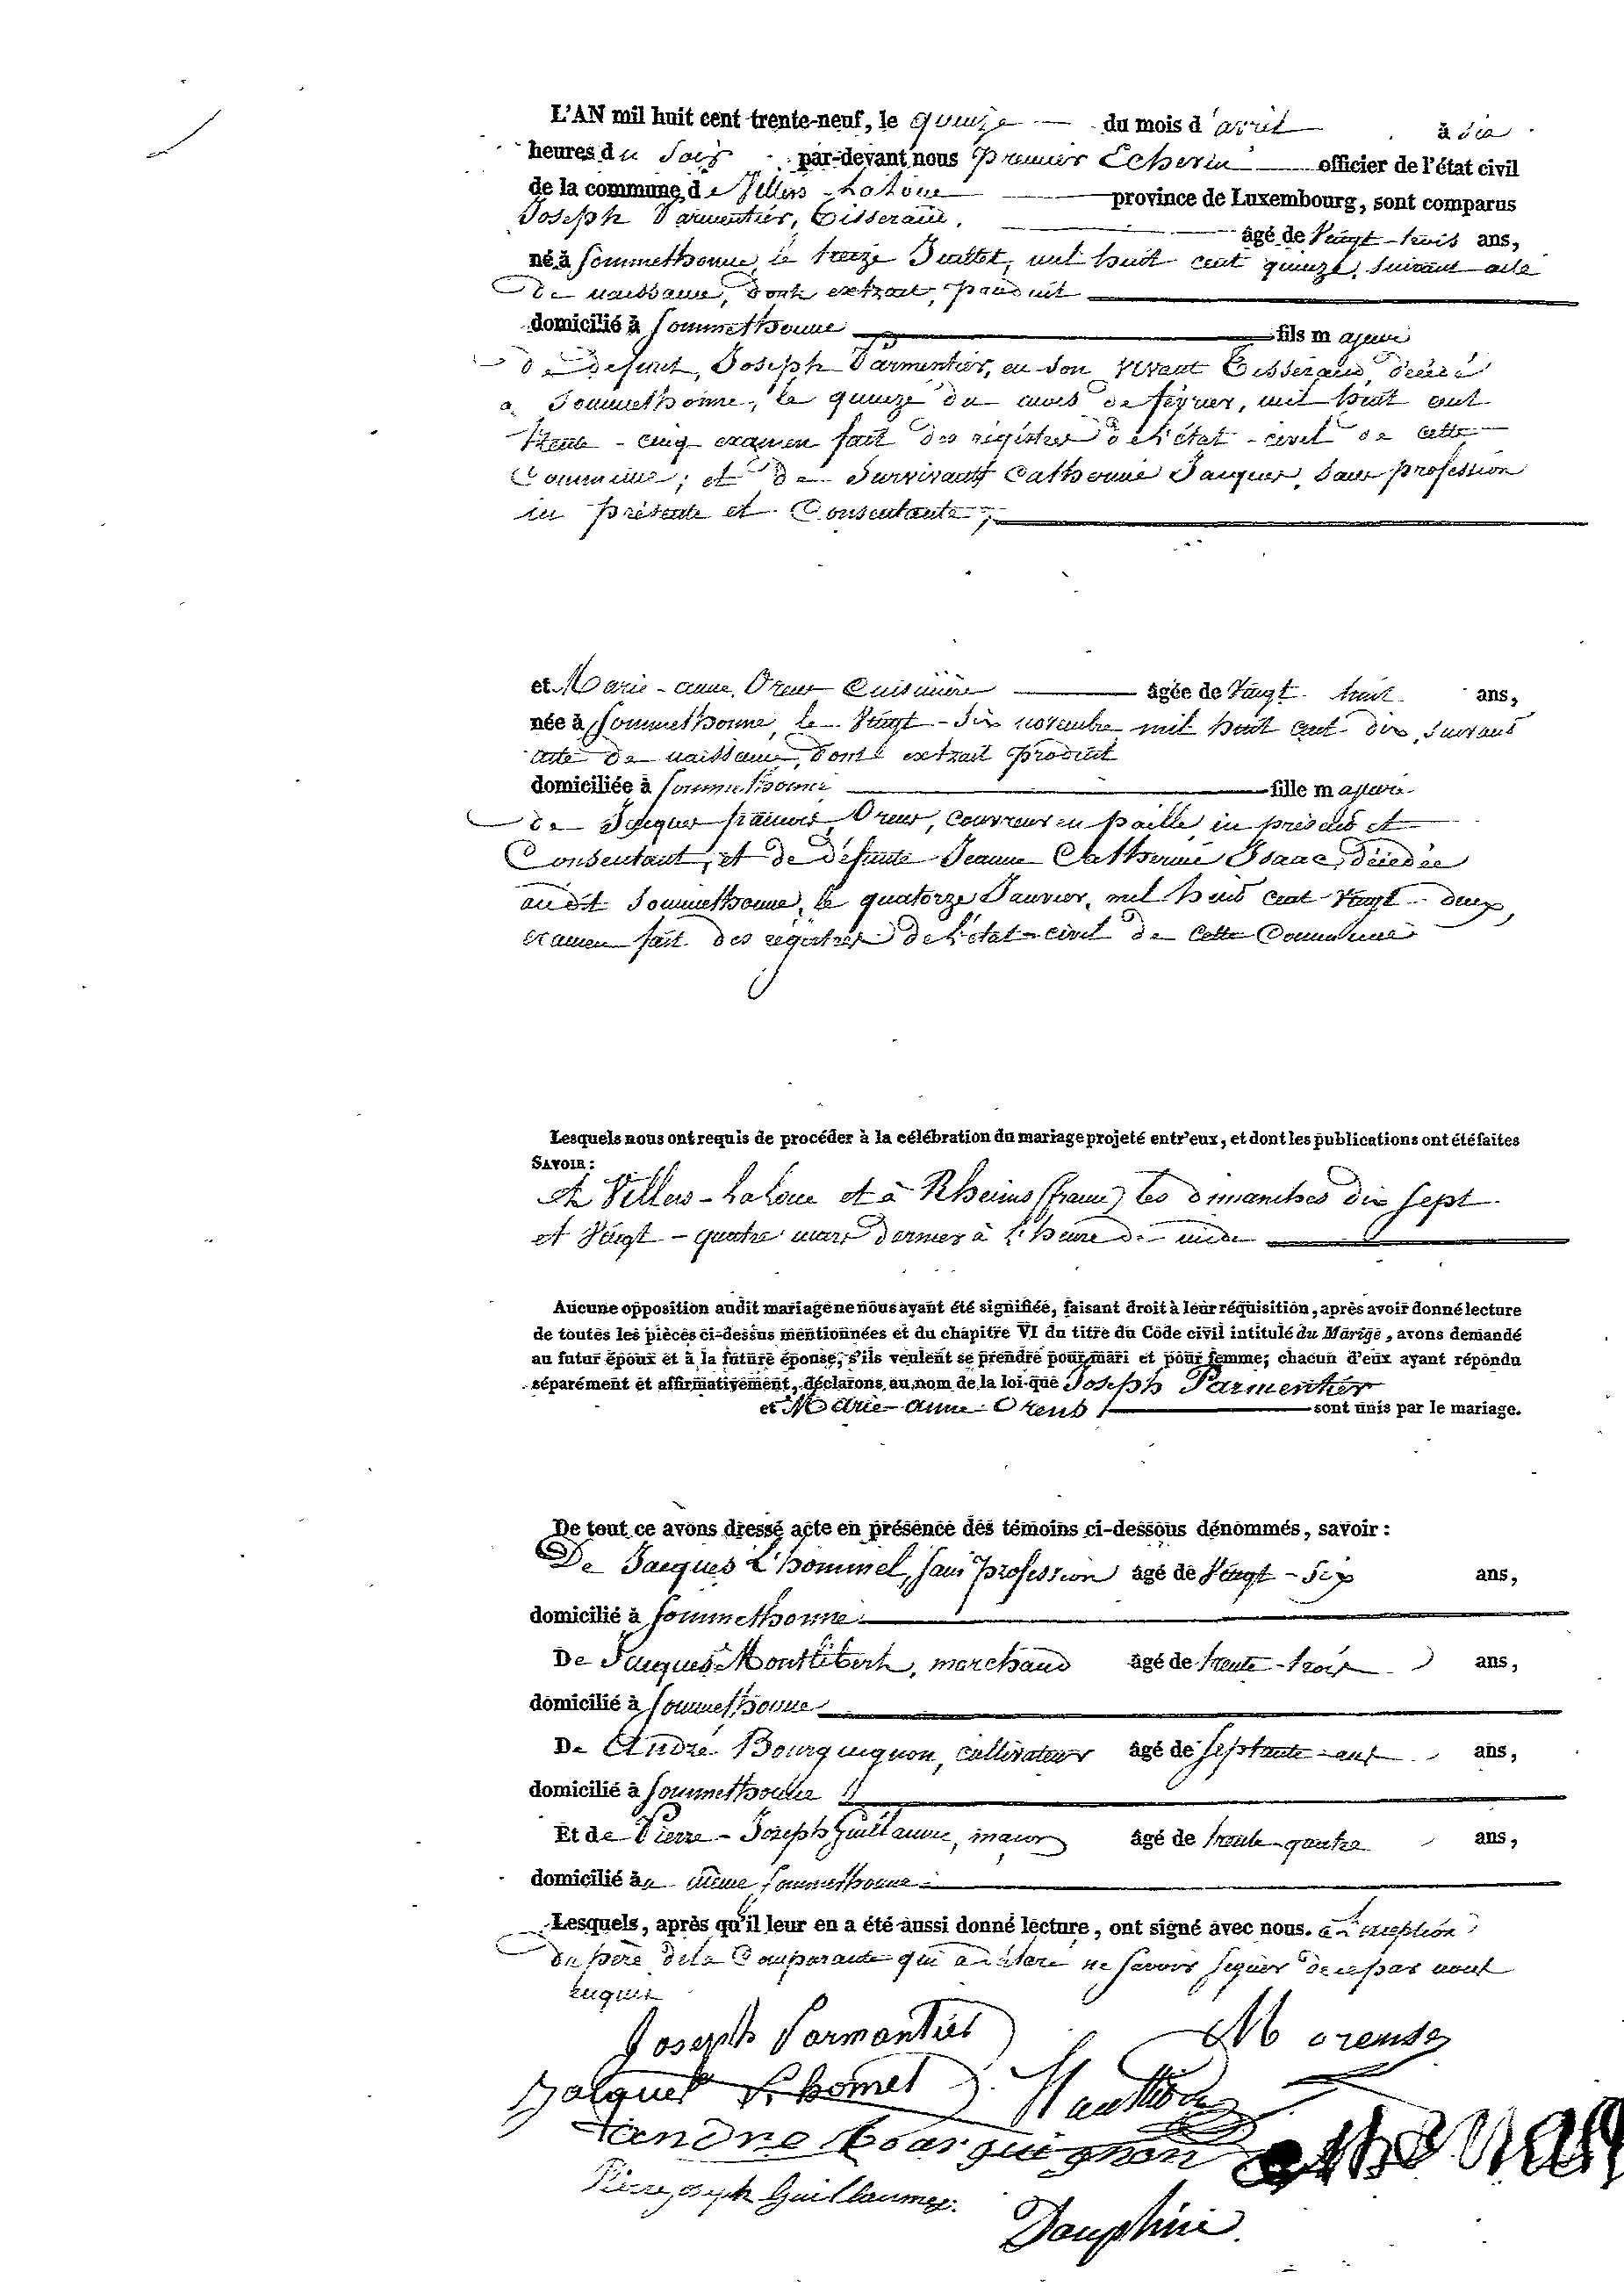 L'AN mil huit cent trente-neuf, le quinze du mois d'avril à six
heures du soir par-devant nous Premier Echevin officier de l'état civil
de la commune de Villers-Laloue province de Luxembourg, sont comparus
Joseph Parmentier, Tisserand,
âgé de Vingt-trois ans,
né à Sommethonne, le treize Juillet, mil huit cent quinze, suivant acte
de naissance, dont extrait, produit
domicilié à Sommethonne fils majeur
de défunt, Joseph Parmentier, en son vivant Tisserand, décédé
à Sommethonne, le quinze du mois de février, mil huit cent
trente-cinq examen fait des registres de l'état-civil de cette
Commune; et de Survivante Catherine Jacques, sans profession
ici présente et Consentante,
et Marie-anne Oreux Cuisinière âgée de Vingt-huit ans,
née à Sommethonne, le Vingt-six novembre mil huit cent dix, suivant
acte de naissance, dont extrait produit
domiciliée à Sommethonne fille majeure
de Jacques françois Oreux, couvreur en paille, ici présent et
Consentant, et de défunte Jeanne Catherine Isaac, décédée
audit Sommethonne, le quatorze Janvier, mil huit cent Vingt-deux,
examen fait des registres de l'état-civil de cette Commune
Lesquels nous ont requis de procéder à la célébration du mariage projeté entr'eux, et dont les publications ont été faites
SAVOIR:
A Villers-Laloue et à Rheims (france) les dimanches dix sept
et Vingt-quatre mars dernier à l'heure de midi
Aucune opposition audit mariage ne nous ayant été signifiée, faisant droit à leur réquisition, après avoir donné lecture
de toutes les pièces ci-dessus mentionnées et du chapitre VI du titre du Code civil intitulé du Marige, avons demandé
au futur époux et à la future épouse, s'ils veulent se prendre pour mari et pour femme; chacun d'eux ayant répondu
séparément et affirmativement, déclarons au nom de la loi que Joseph Parmentier
et Marie-anne Oreux sont unis par le mariage.
De tout ce avons dressé acte en présence des témoins ci-dessous dénommés, savoir:
De Jacques L'hommel, sans profession âgé de Vingt-six ans,
domicilié à Sommethonne
De Jacques Montlibert, marchand âgé de trente-trois ans,
domicilié à Sommethonne
De André Bourguignon, cultivateur âgé de septante ans,
domicilié à Sommethonne
Et de Pierre-Joseph Guillaume, âgé de trente-quatre ans,
domicilié au même Sommethonne
Lesquels, après qu'il leur en a été aussi donné lecture, ont signé avec nous. à l'exception
du père de la Comparante qui a déclaré ne savoir signer de ce par nous
enquis
Joseph Parmantier M oreux
Jacques Lhomel
andre bourguignon
Pierre joseph Guillaume
Dauphin